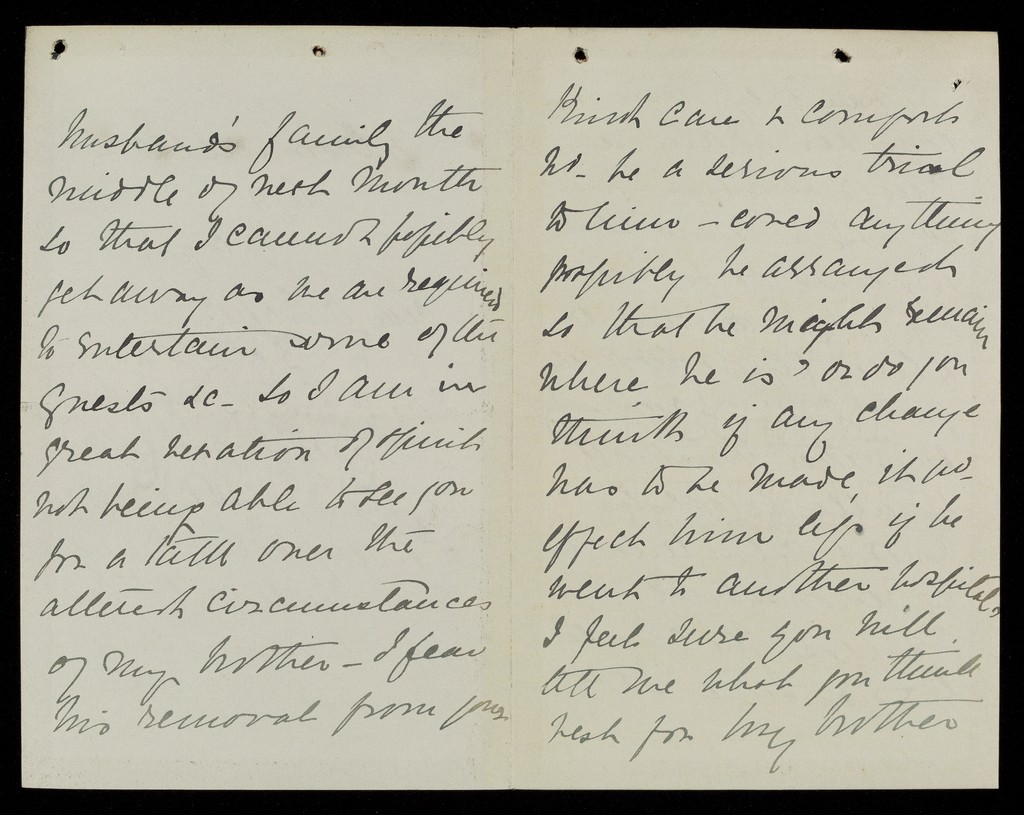 husband's family the
middle of next month
so that I cannot possibly
get away as we are required
to entertain some of the
guests &c - so I am in
great vexation of spirit
not being able to see you
for a talk over the
altered circumstances
of my brother - I fear
his removal from your
kind care & comforts
wd- be a serious trial
to him - coued anything
possibly be arranged
so that he might remain
where he is? or do you
think if any change
has to be made, it wd-
effect him less if he
went to another hospital?
I feel sure you will
tell me what you think
best for my brother